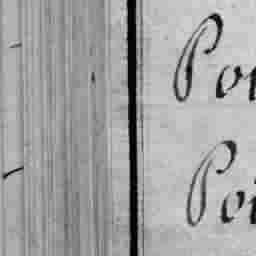 Poi
Poi